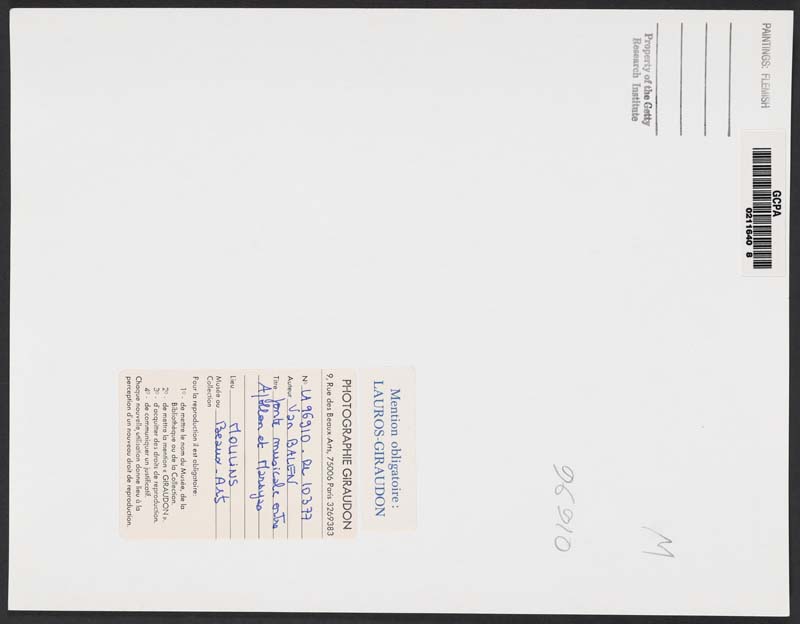 PAINTINGS: FLEMISH
Property of the Getty
Research Institute
GCPA
0211640 8
Mention obligatoire :
LAUROS-GIRAUDON
PHOTOGRAPHIE GIRAUDON
9, Rue des Beaux Arts, 75006 Paris 3269383
N° LA 96910. PL 10377
Auteur Van BALEN
Titre Joute musicale entre
Apollon et Marsyas
Lieu MOULINS
Musée ou
Collection Beaux-Arts
Pour la reproduction il est obligatoire:
1° - de mettre le nom du Musée, de la
Bibliothèque ou de la Collection.
2° - de mettre la mention « GIRAUDON ».
3° - d'acquitter des droits de reproduction.
4° - de communiquer un justificatif.
Chaque nouvelle utilisation donne lieu à la
perception d'un nouveau droit de reproduction.
96910
M